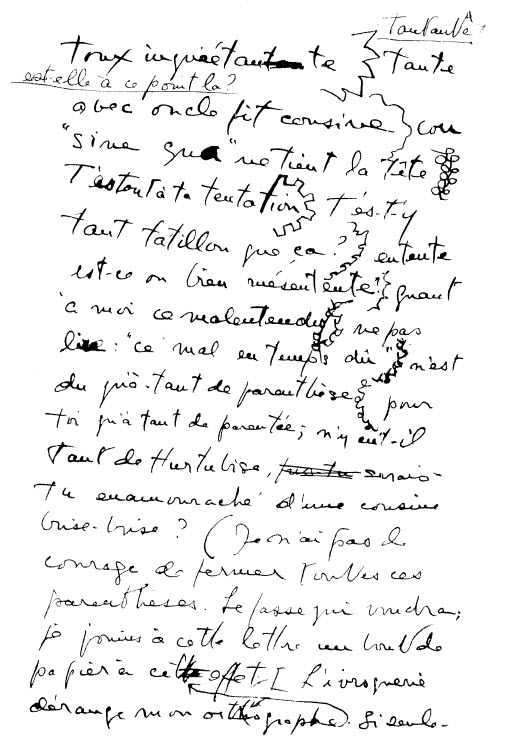 TauTauTé
Toux inquiétante tante
est-elle à ce point là?
avec oncle fit cousine con
"sine qua" ne tient la tête
T'es tout à ta tentation T'és-t-y
tant tatillon que ça? entente
est-ce ou bien mésentente? quant
à moi ce malentendu ne pas
lire: "ce mal en temps dû" n'est
dû qu'à tant de parenthèse pour
toi qu'à tant de parentée; n'y eut-il
Tant de Hurtubise, serais-
Tu enamouraché d'une cousine
brise-brise? (Je n'ai pas le
courage de fermer toutes ces
parenthèses. Le fasse qui voudra;
je joins à cette lettre un bout de
papier à cet effet [L'ivrognerie
dérange mon orthographe). Si seule-